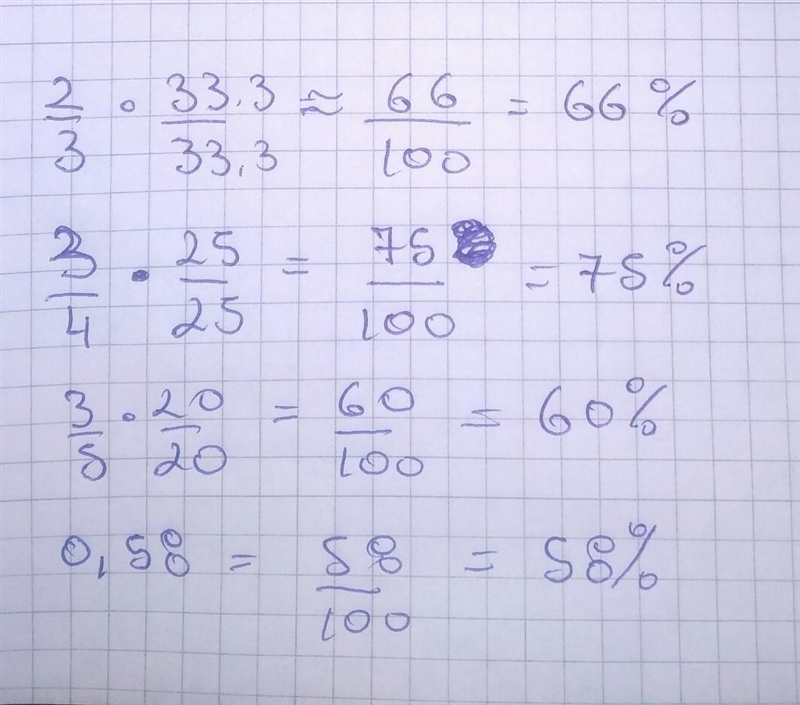 2/3 · 33.3/33.3 ≈ 66/100 = 66%
3/4 · 25/25 = 75/100 = 75%
3/5 · 20/20 = 60/100 = 60%
0,58 = 58/100 = 58%